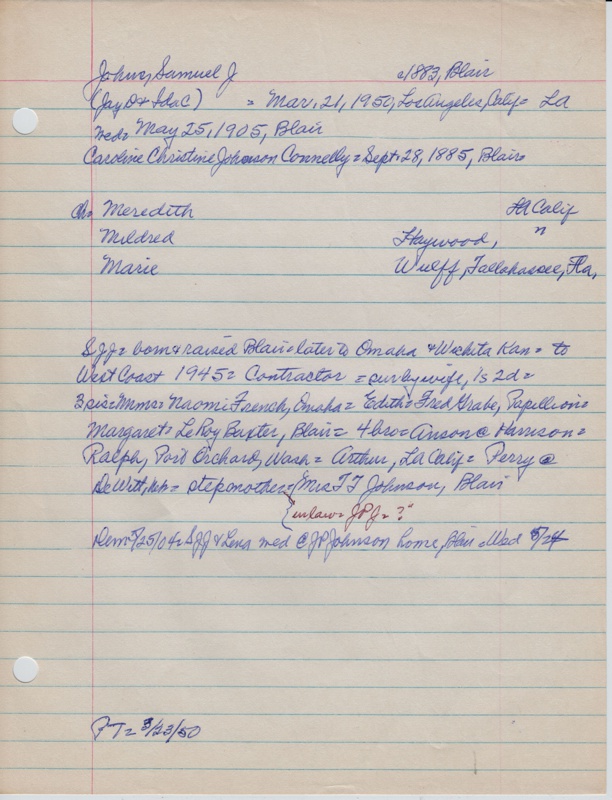 Johns, Samuel J c1883, Blair
(Jay D & Ida C) = Mar. 21, 1950, Los Angeles, Calif = LA
med = May 25, 1905, Blair
Caroline Christine Johnson Connelly = Sept. 28, 1885, Blair
Ch = Meredith LA Calif
Mildred Haywood, "
Marie Wulff, Tallahassee, Fla,
SJJ = born & raised Blair = later to Omaha & Wichita Kan = to
West Coast 1945 = Contractor = sur by wife, 1s 2d =
3 sis = Mmes = Naomi French, Omaha = Edith = Fred Grabe, Papillion =
Margaret = LeRoy Baxter, Blair = 4 bro = Anson @ Harrison =
Ralph, Port Orchard, Wash = Arthur, LA Calif = Perry @
DeWitt, = stepmother = Mrs TF Johnson, Blair
{inlaw = JPJ = ?"
Dem = 5/25/04 = SJJ & Lena med @ JP Johnson home, Blair Wed 5/24
PT = 3/23/50